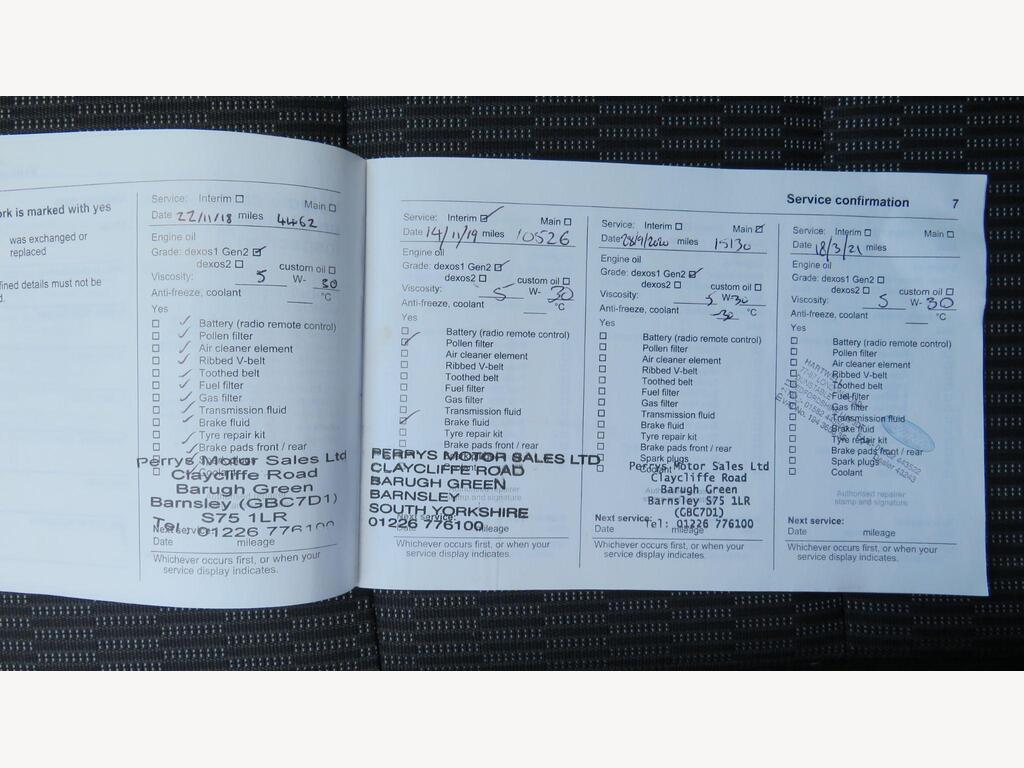 ork is marked with yes
was exchanged or
replaced
fined details must not be
d.
Service: Interim ☐ Main ☐
Date 22/11/18 miles 4462
Engine oil
Grade: dexos1 Gen2 ☑
dexos2 ☐ custom oil ☐
Viscosity: 5 W- 30
Anti-freeze, coolant °C
Yes
Battery (radio remote control)
Pollen filter
Air cleaner element
Ribbed V-belt
Toothed belt
Fuel filter
Gas filter
Transmission fluid
Brake fluid
Tyre repair kit
Brake pads front / rear
Perrys Motor Sales Ltd
Claycliffe Road
Barugh Green
Barnsley (GBC7D1)
S75 1LR
Tel 01226 776100
Next service:
Date mileage
Whichever occurs first, or when your
service display indicates.
Service confirmation 7
Service: Interim ☑ Main ☐
Date 14/11/19 miles 10526
Engine oil
Grade: dexos1 Gen2 ☑
dexos2 ☐ custom oil ☐
Viscosity: 5 W- 30
Anti-freeze, coolant °C
Yes
Battery (radio remote control)
Pollen filter
Air cleaner element
Ribbed V-belt
Toothed belt
Fuel filter
Gas filter
Transmission fluid
Brake fluid
Tyre repair kit
Brake pads front / rear
PERRYS MOTOR SALES LTD
CLAYCLIFFE ROAD
BARUGH GREEN
BARNSLEY
SOUTH YORKSHIRE
01226 776100
Next service:
Date mileage
Whichever occurs first, or when your
service display indicates.
Service: Interim ☐ Main ☑
Date 28/9/2020 miles 15130
Engine oil
Grade: dexos1 Gen2 ☑
dexos2 ☐ custom oil ☐
Viscosity: 5 W-30
Anti-freeze, coolant -30 °C
Yes
Battery (radio remote control)
Pollen filter
Air cleaner element
Ribbed V-belt
Toothed belt
Fuel filter
Gas filter
Transmission fluid
Brake fluid
Tyre repair kit
Brake pads front / rear
Spark plugs
Perrys Motor Sales Ltd
Claycliffe Road
Barugh Green
Barnsley S75 1LR
(GBC7D1)
Tel: 01226 776100
Next service:
Date mileage
Whichever occurs first, or when your
service display indicates.
Service: Interim ☐ Main ☐
Date 18/3/21 miles
Engine oil
Grade: dexos1 Gen2 ☐
dexos2 ☐ custom oil ☐
Viscosity: 5 W- 30
Anti-freeze, coolant °C
Yes
Battery (radio remote control)
Pollen filter
Air cleaner element
Ribbed V-belt
Toothed belt
Fuel filter
Gas filter
Transmission fluid
Brake fluid
Tyre repair kit
Brake pads front / rear
Spark plugs
Coolant
Authorised repairer
stamp and signature
Next service:
Date mileage
Whichever occurs first, or when your
service display indicates.